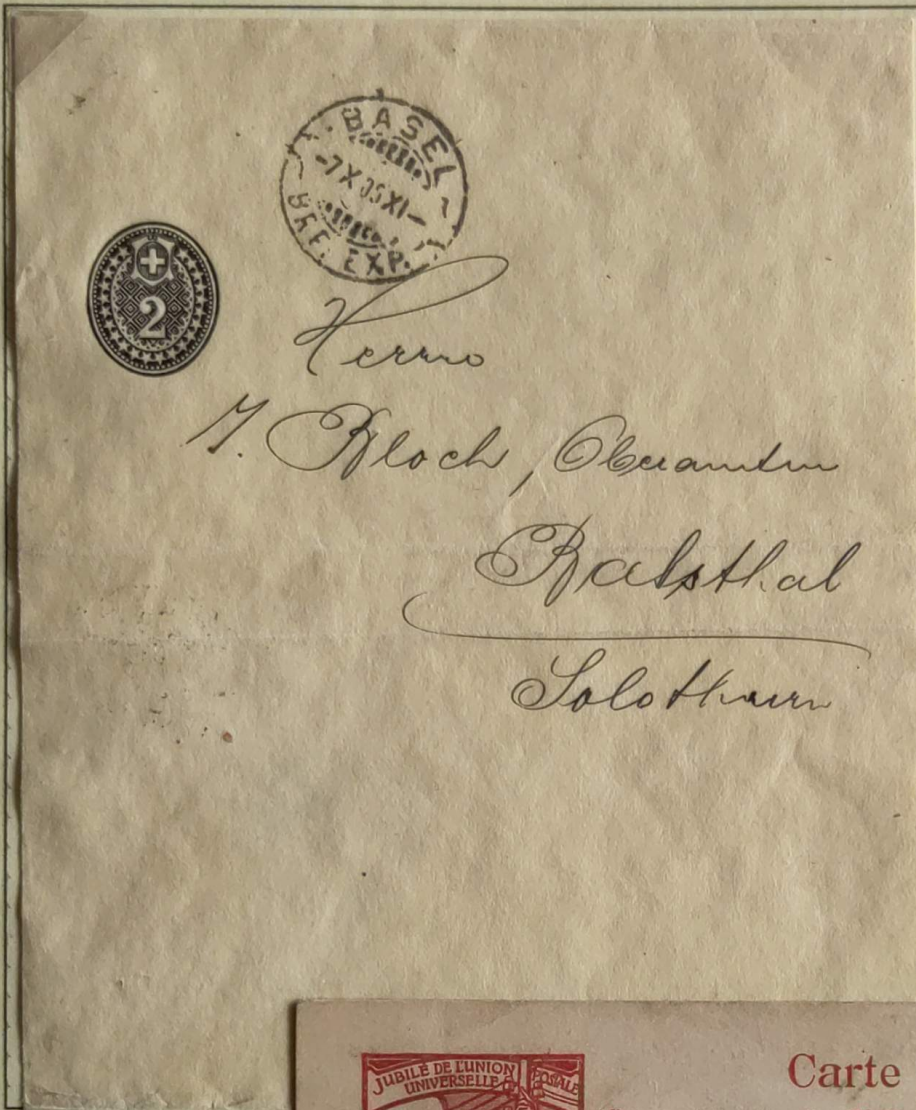 BASEL
-7 X 05 XI-
BRF. EXP.
2
Herrn
J. Bloch, Oberamtm
Balsthal
Solothurn
JUBILÉ DE L'UNION
UNIVERSELLE POSTALE
Carte